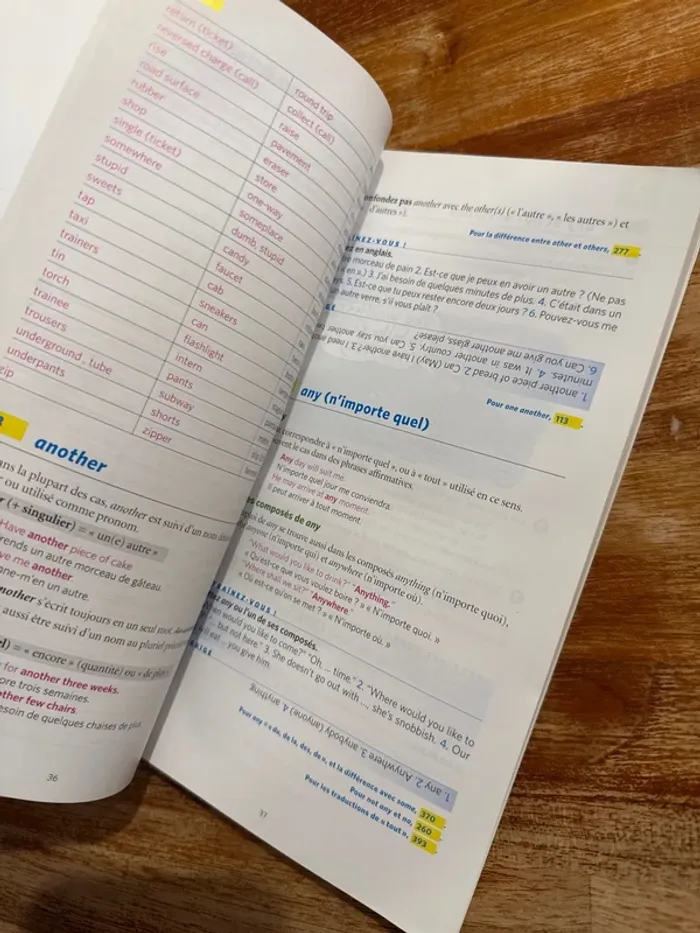 return (ticket)
reversed charge (call) round trip
rise collect (call)
road surface raise
rubber pavement
shop eraser
single (ticket) store
somewhere one-way
stupid someplace
sweets dumb, stupid
tap candy
taxi faucet
trainers cab
tin sneakers
torch can
trainee flashlight
trousers intern
underground, tube pants
underpants subway
zip shorts
zipper
another
ans la plupart des cas, another est suivi d'un nom
ou utilisé comme pronom.
(+ singulier) = « un(e) autre »
Have another piece of cake
rends un autre morceau de gâteau.
ve me another.
ne-m'en un autre.
nother s'écrit toujours en un seul mot,
aussi être suivi d'un nom au pluriel
= « encore » (quantité) ou « de plus
for another three weeks.
ore trois semaines.
ther few chairs.
esoin de quelques chaises de plus.
36
onfondez pas another avec the other(s) (« l'autre », « les autres ») et
d'autres »).
Pour la différence entre other et others, 277
INEZ-VOUS !
ez en anglais.
re morceau de pain 2. Est-ce que je peux en avoir un autre ? (Ne pas
« en ».) 3. J'ai besoin de quelques minutes de plus. 4. C'était dans un
5. Est-ce que tu peux rester encore deux jours ? 6. Pouvez-vous me
autre verre, s'il vous plaît ?
1. another piece of bread 2. Can (May) I have another? 3. I need
minutes. 4. It was in another country. 5. Can you stay another
6. Can you give me another glass, please?
Pour one another, 113
any (n'importe quel)
correspondre à « n'importe quel », ou à « tout » utilisé en ce sens.
vent le cas dans des phrases affirmatives.
Any day will suit me.
N'importe quel jour me conviendra.
He may arrive at any moment.
Il peut arriver à tout moment.
es composés de any
ploi de any se trouve aussi dans les composés anything (n'importe quoi),
anyone (n'importe qui) et anywhere (n'importe où).
"What would you like to drink?" "Anything."
« Qu'est-ce que vous voulez boire ? » « N'importe quoi. »
"Where shall we sit?" "Anywhere."
« Où est-ce qu'on se met ? » « N'importe où. »
TRAÎNEZ-VOUS !
any ou l'un de ses composés.
en would you like to come?" "Oh, ... time." 2. "Where would you like to
"... but not here." 3. She doesn't go out with ..., she's snobbish. 4. Our
will eat ... you give him.
1. any 2. Anywhere 3. anybody (anyone) 4. anything
Pour any « de, de la, des, de », et la différence avec some, 370
Pour not any et no, 260
Pour les traductions de « tout », 393
37